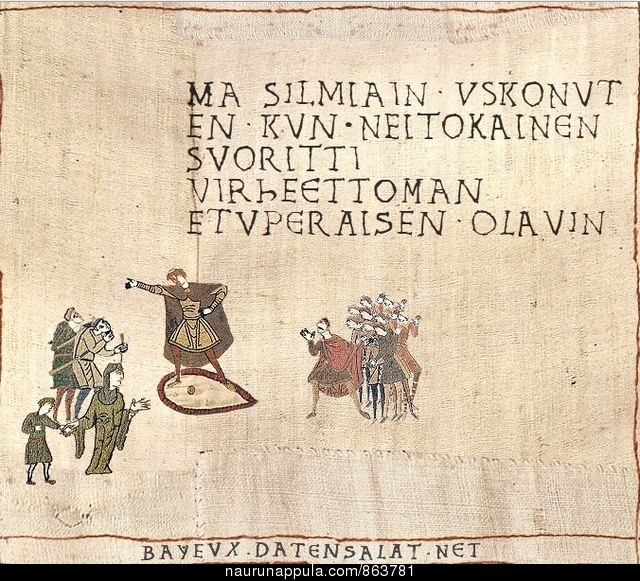 MA SILMIAIN · VSKONVT
EN · KVN · NEITOKAINEN
SVORITTI
VIRhEETTOMAN
ETVPERAISEN · OLAVIN
BAYEVX · DATENSALAT · NET
naurunappula.com/863781